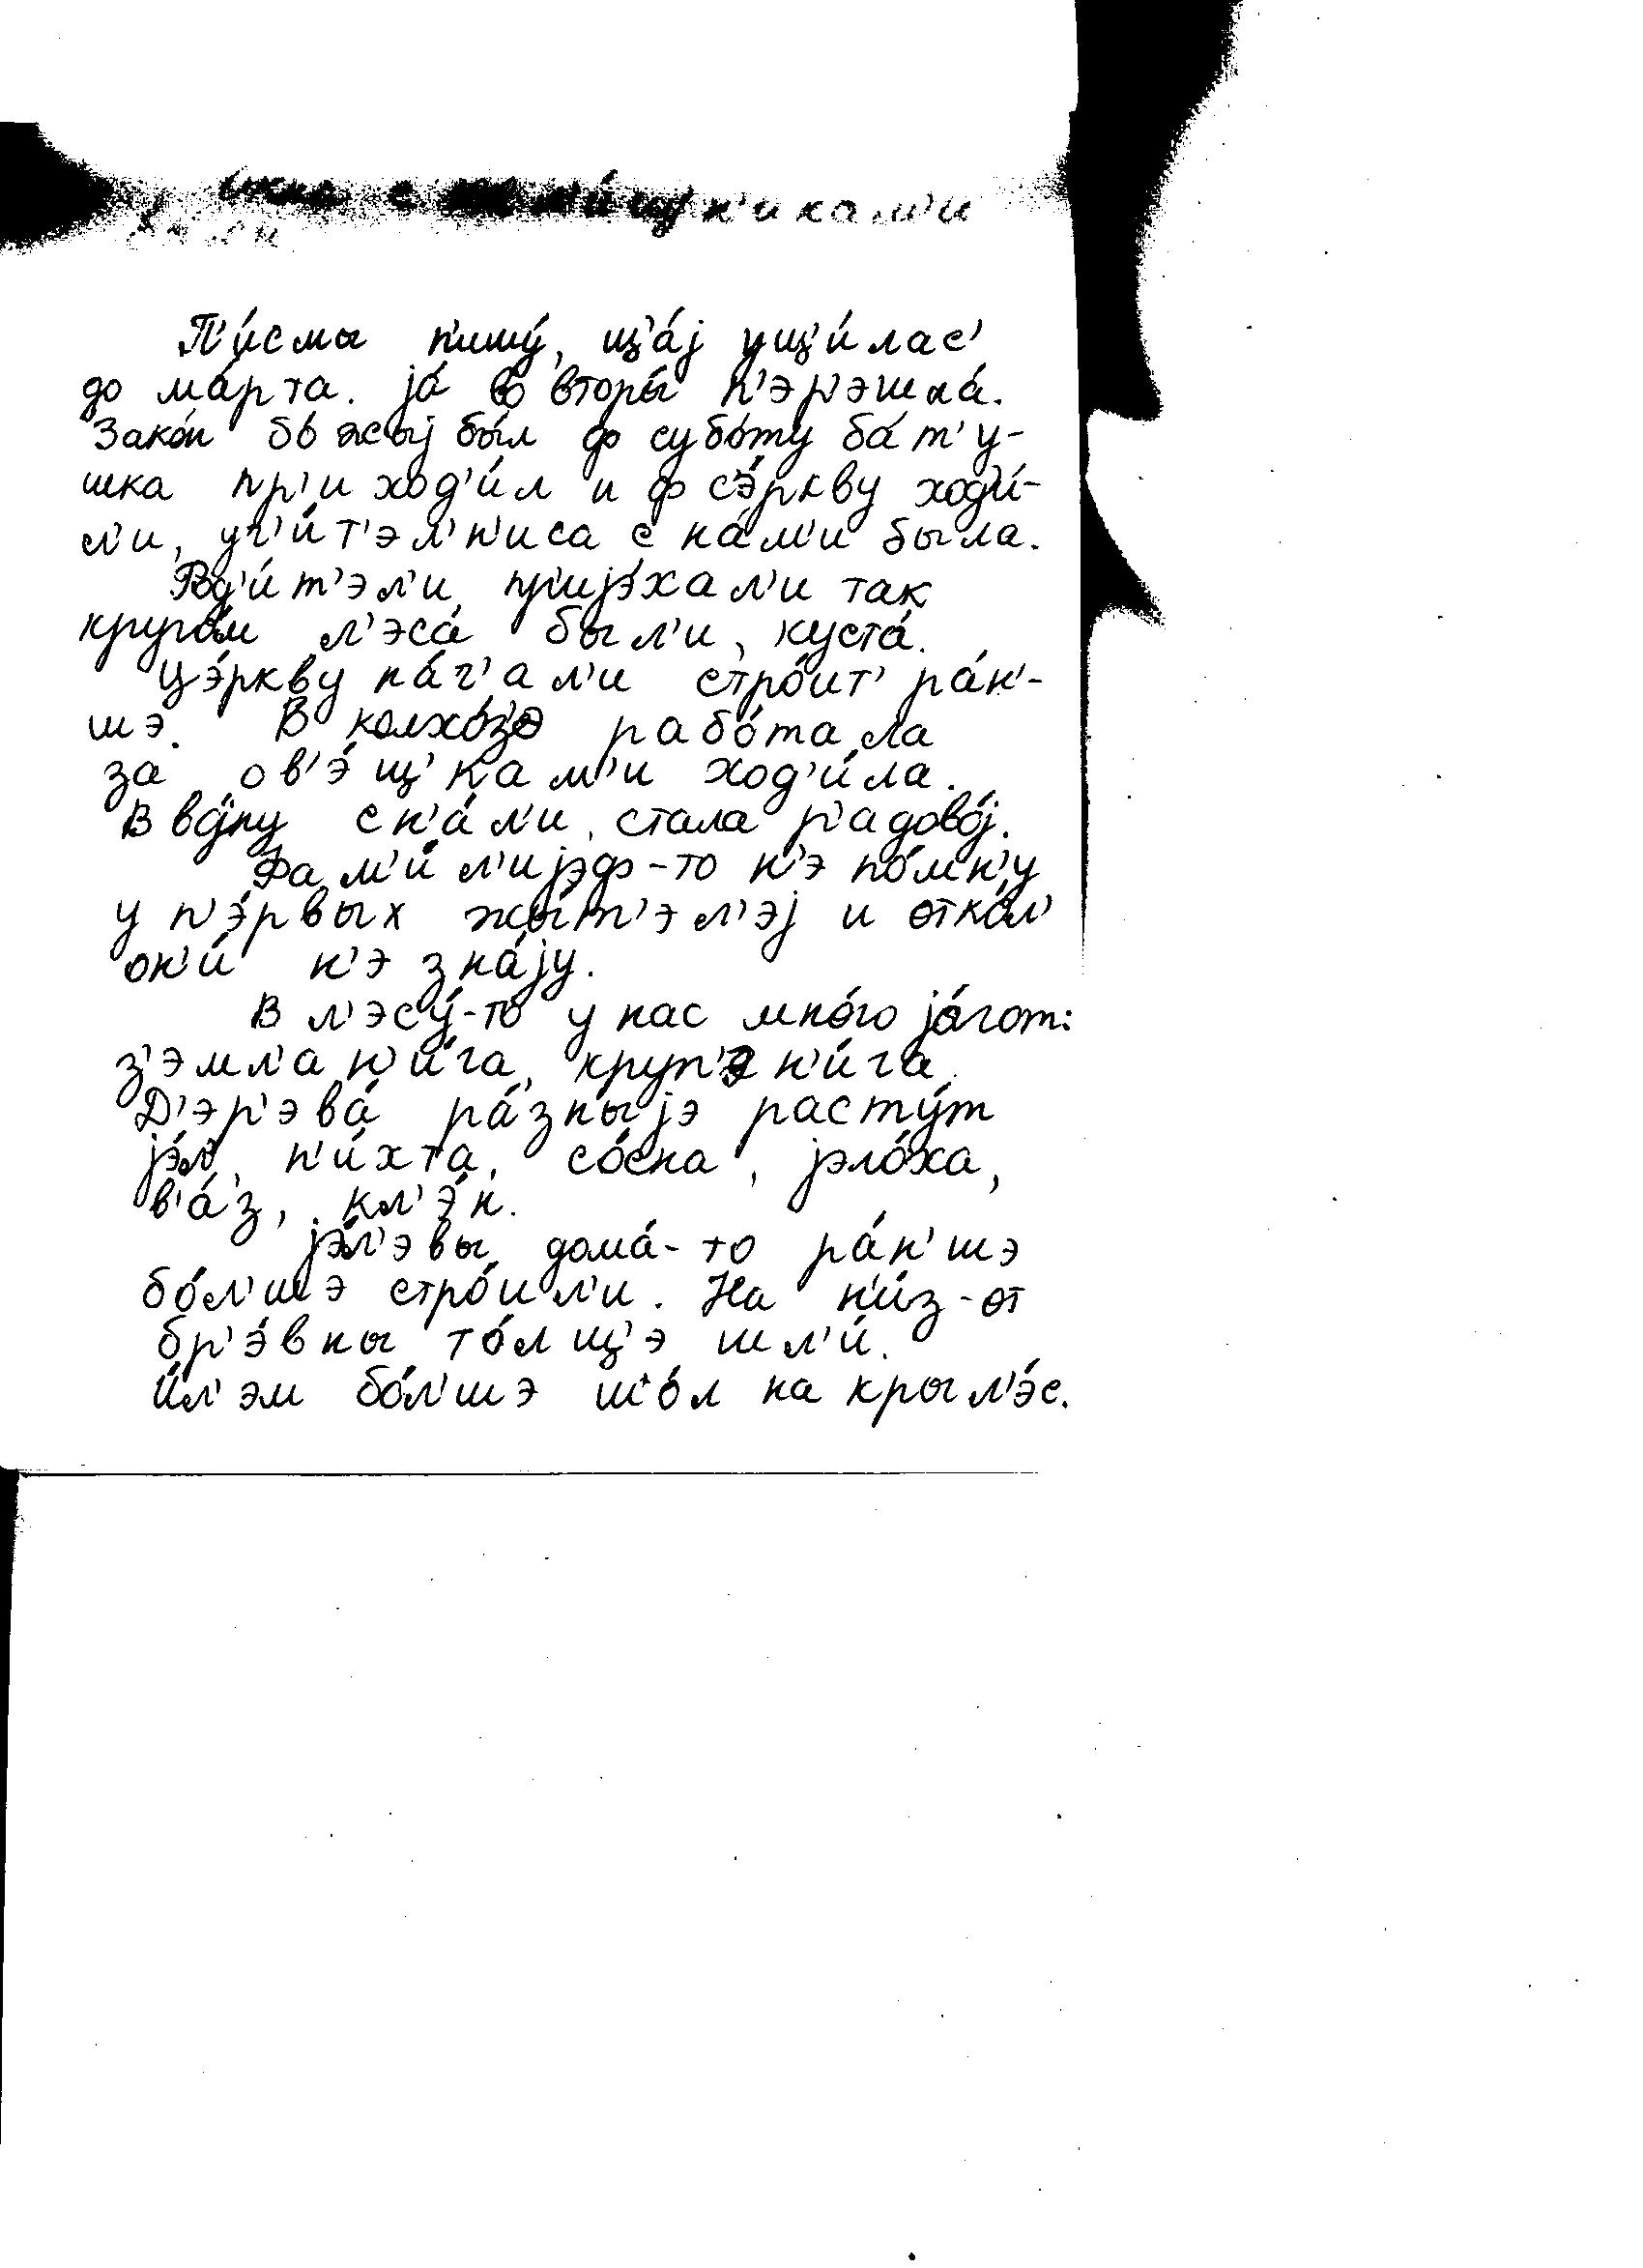 с
П'и́смы п'ишу́, щ'а́j ущ'и́лас'
до ма́рта. jа́ во вторы́ п'эр'эшла́.
Зако́н бо́жыj бы́л ф субо́ту ба́т'у-
шка пр'иход'и́л и ф сэ́ркву ход'и́-
л'и, уч'и́т'эл'н'иса с на́м'и была.
Род'и́т'эл'и пр'иjэ́хал'и так
круго́м л'эса́ был'и, куста́.
Цэ́ркву на́ч'ал'и стро́ит' ра́н'-
шэ. В колхо́з'э рабо́тала
за ов'э́щ'кам'и ход'и́ла.
В во́jну сн'а́л'и, стала р'адово́j.
Фам'и́л'иjэф-то н'э по́мн'у
у п'э́рвых жы́т'эл'эj и отко́л'
он'и́ н'э зна́jу.
В л'эсу́-то у нас мно́го jа́гот:
з'эмл'ан'и́га, круп'эн'и́га.
Д'эр'эва́ ра́зныjэ расту́т
jэ́л', п'и́хта, со́сна, jэло́ха,
в'а́з, кл'э́н.
jэ́л'эвы дома́-то ра́н'шэ
бо́л'шэ стро́ил'и. На н'и́з-от
бр'э́вны то́лщ'э шл'и́.
И́л'эм бо́л'шэ ш'о́л на крыл'э́с.